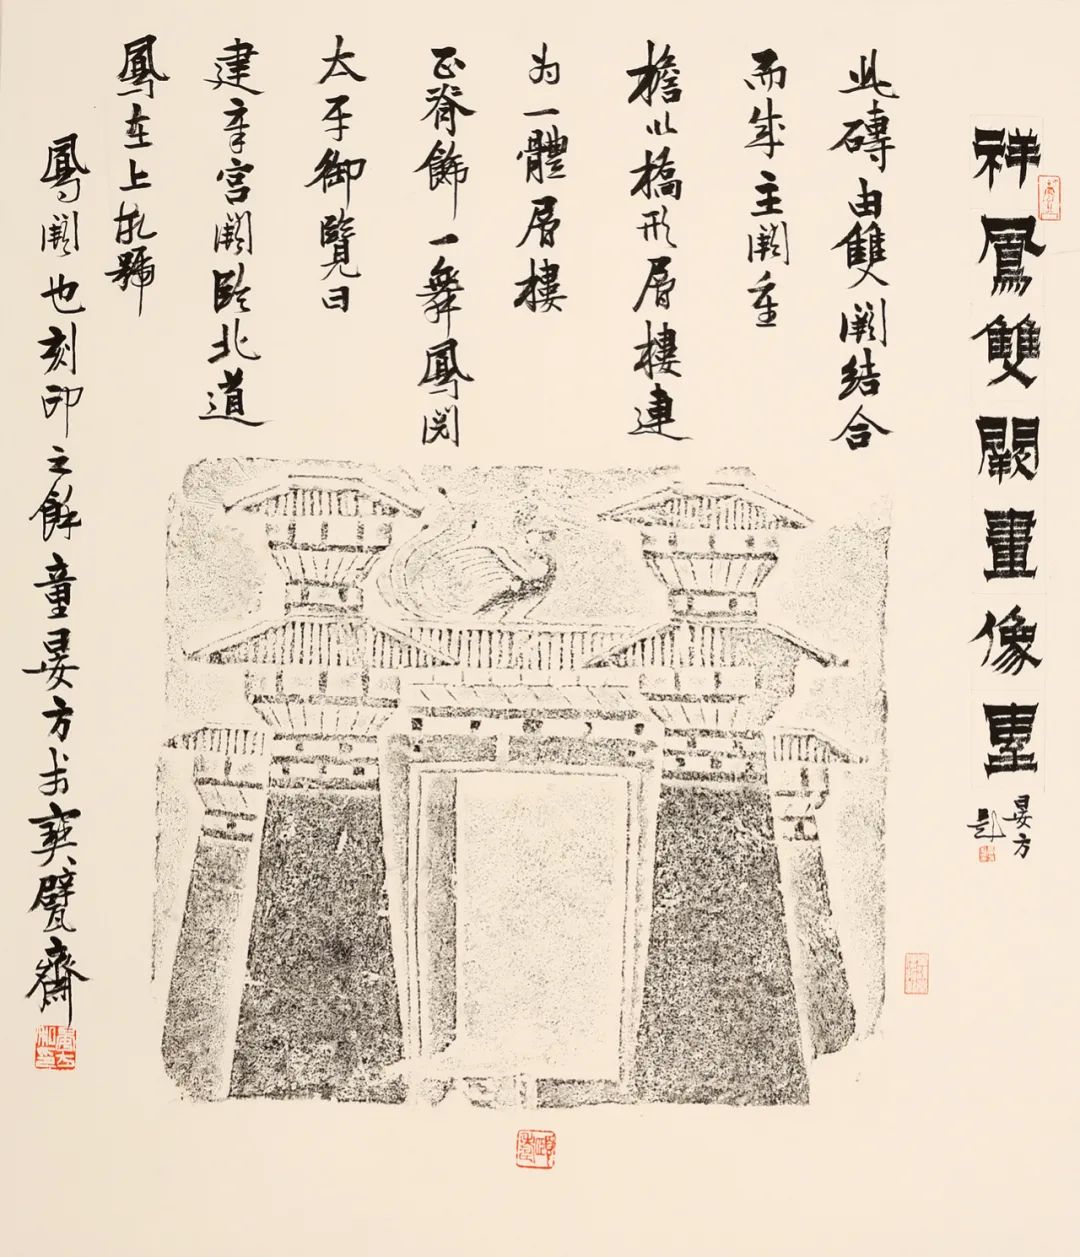 祥鳳雙闕畫像
晏方
題
此磚由雙闕結合
而成主闕重
檐以橋形層樓連
为一體層樓
正脊飾一舞鳳閱
太平御覽曰
建章宮闕臨北道
鳳在上故號
鳳闕也刻印之餘童晏方於甓齋